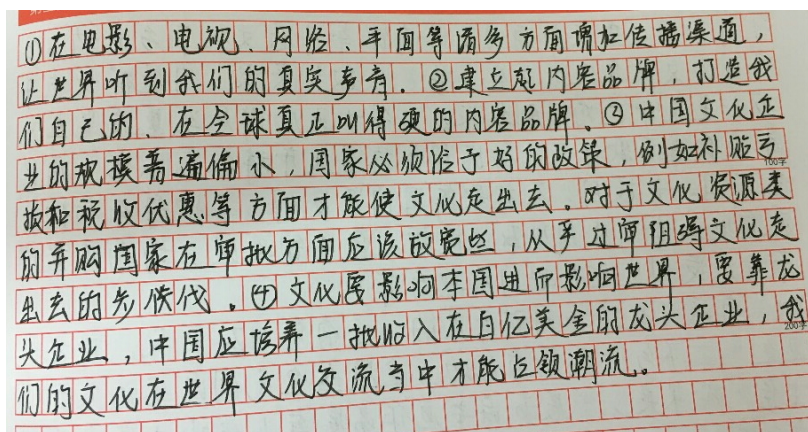 ①在电影、电视、网络、平面等诸多方面增加传播渠道，
让世界听到我们的真实声音。②建立起内容品牌，打造我
们自己的、在全球真正叫得硬的内容品牌。③中国文化企
业的规模普遍偏小，国家必须给予好的政策，例如补贴亏
损和税收优惠等方面才能使文化走出去。对于文化资源类
100字
的并购国家在审批方面应该放宽些，从乎过审阻碍文化走
出去的步伐。④文化要影响本国进而影响世界，要靠龙
头企业，中国应培养一批收入在百亿美金的龙头企业，我
200字
们的文化在世界文化交流当中才能占领潮流。